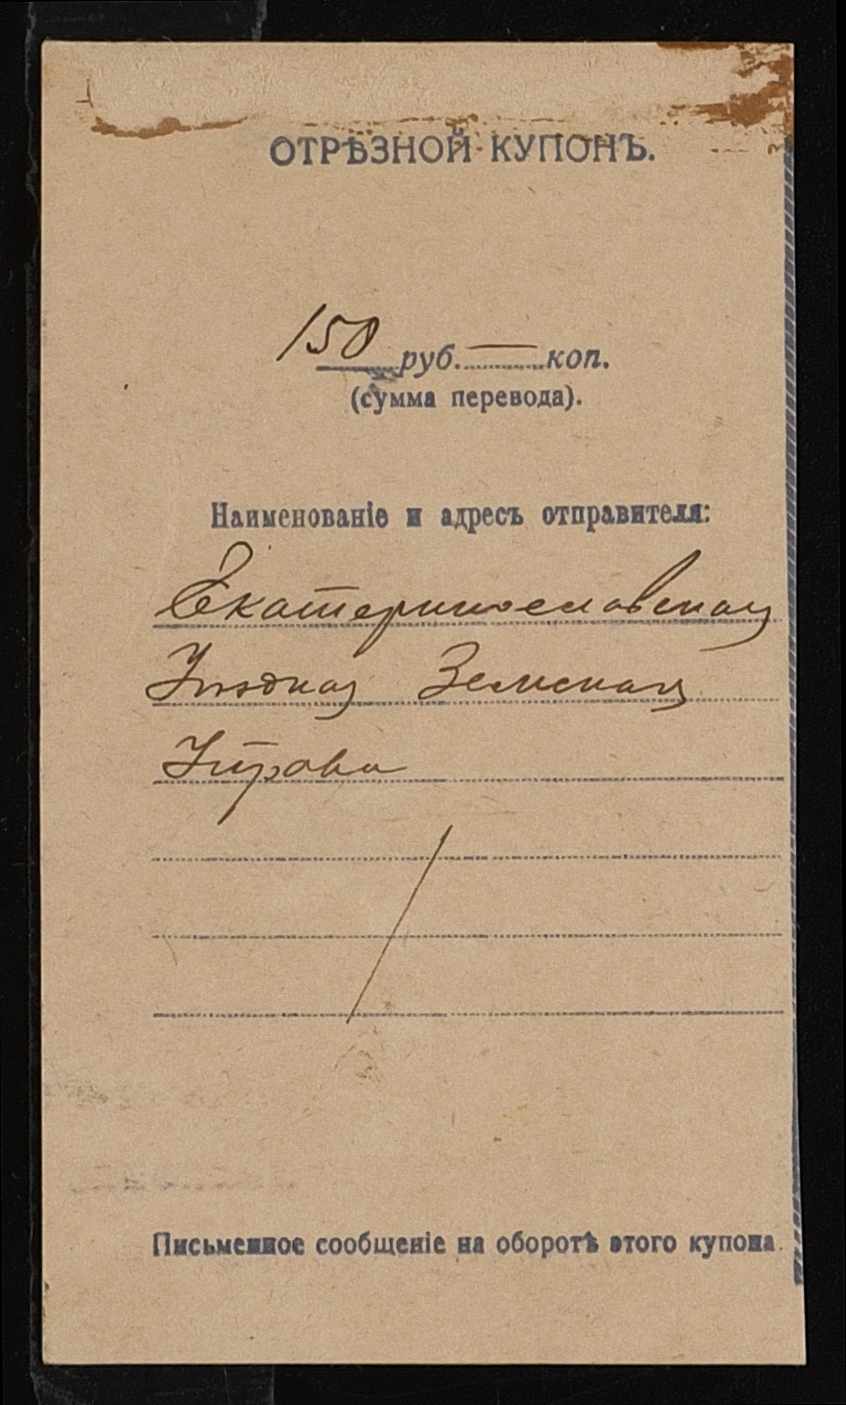 ОТРѢЗНОЙ КУПОНЪ.
150 руб. — коп.
(сумма перевода).
Наименованіе и адресъ отправителя:
Екатеринославская
Уѣздная Земская
Управа
Письменное сообщеніе на оборотѣ этого купона.